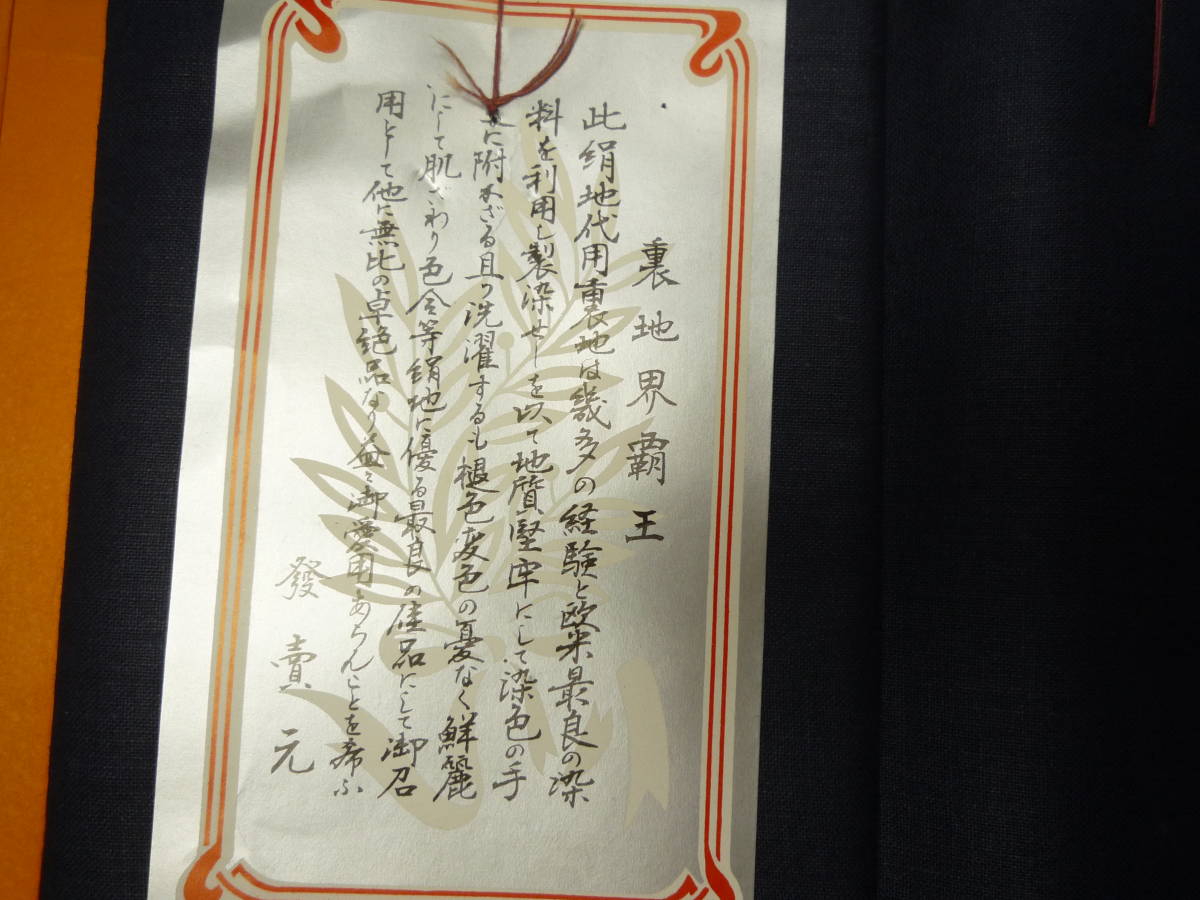 裏地界覇王
此絹地代用裏地は幾多の経験と欧米最良の染
料を利用し製染せしを以て地質堅牢にして染色の手
に附かざる且つ洗濯するも褪色変色の憂なく鮮麗
にして肌ざわり色合等絹地に優る最良の佳品にして御召
用として他に無比の卓絶品なり益々御愛用あらんことを希ふ
發賣元